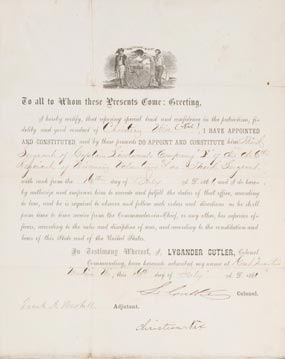 To all to Whom these Presents Come: Greeting,
I hereby certify, that reposing special trust and confidence in the patriotism, fi-
delity and good conduct of Christian I HAVE APPOINTED
AND CONSTITUTED and by these presents DO APPOINT AND CONSTITUTE him Third
Sergeant of Captain Company of the
Regiment of Wisconsin
with rank from the 16th day of July A. D. 1861 and do here-
by authorize and empower him to execute and fulfill the duties of that office, according
to law, and he is required to observe and follow such orders and directions as he shall
from time to time receive from the Commander-in-Chief, or any other, his superior of-
ficers, according to the rules and discipline of war, and according to the constitution and
laws of this State and of the United States.
In Testimony Whereof, I, LYSANDER CUTLER, Colonel
Commanding, have hereunto subscribed my name at
this 16th day of July A. D. 1861
L. Cutler Colonel.
Frank A. Haskell Adjutant.
Christian